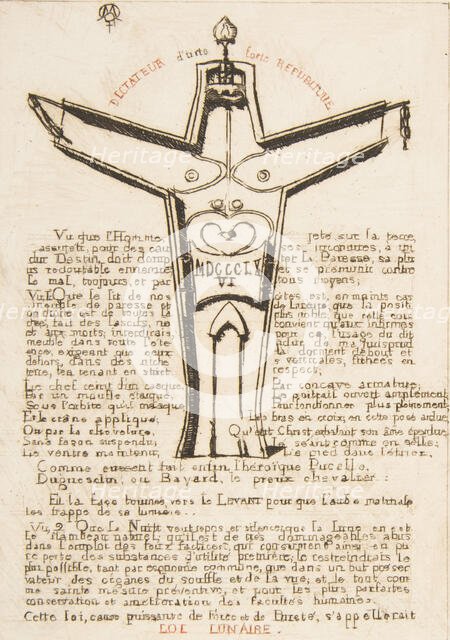 DICTATEUR d'icte forte REPUBLIQUE
MDCCCLX
VI
Vu que l'Homme, jeté sur la terre,
assujeti, pour des cau ses inconnues, à un
dur Destin, doit domp ter la Paresse, sa plus
redoutable ennemie et se prémunir contre
Le mal, toujours, et par tous moyens;
Vu Que le lit de nos cités est, en maints cas
de paresse et de luxe, que la posit
le plus noble, que cette cou
et aux morts; interdirait pour ce, l'usage dit
meuble dans toute l'éte
exigeant que ceux la dorment debout et
dehors, dans des niche verticales, fichées en
terre, en tenant en strict respect;
Le chef ceint d'un casque Par concave armature;
Par un moufle étaqué, Le portrait ouvert amplement
Sous l'orbite qu'il masque Pour fonctionner plus pleinement,
Et le crâne appliqué, Les bras en croix, en cette pose ardue
Ou par la chevelure, Qu'eut Christ exhalant son âme éperdue,
Sans façon suspendu, Le séant comme en selle;
Le ventre maintenu, Le pied dans l'étrier,
Comme eussent fait enfin l'héroïque Pucelle,
Duguesclin, ou Bayard, le preux chevalier:
Et la face tournée vers le LEVANT pour que l'aube matinale
les frappe de sa lumière..
Vu, 2° Que la Nuit veut repos et silence; que la Lune en est
le flambeau naturel; qu'il est de très dommageables abus
dans l'emploi des feux factices, qui consument ainsi en pu
re perte des substances d'utilité première, les restreindrait le
plus possible, tant par économie commune, que dans un but préser
vateur des organes du souffle et de la vue; et le tout, com
me sainte mesure préventive, et pour les plus parfaites
conservation et amélioration des facultés humaines.
Cette loi, cause puissante de force et de Pureté, s'appellerait
LOI LUNAIRE.
Heritage
Heritage
Heritage
Heritage
Heritage
Heritage